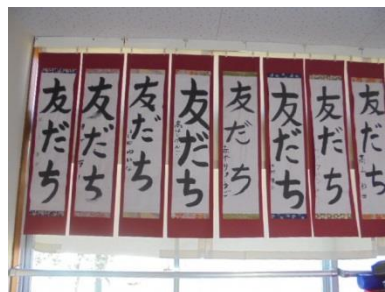 友だち
友だち
友だち
友だち
友だち
友だち
友だち
友だち